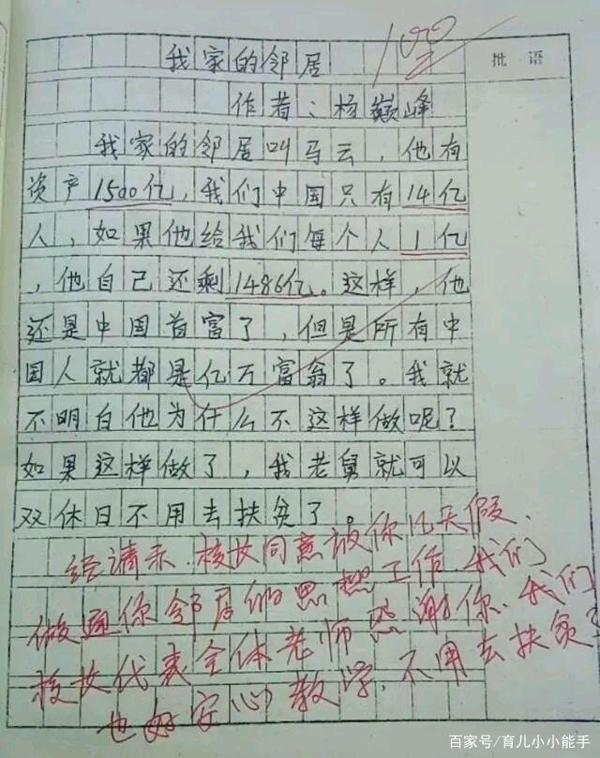 我家的邻居
100
批语
作者：杨巅峰
我家的邻居叫马云，他有
资产1500亿，我们中国只有14亿
人，如果他给我们每个人1亿
，他自己还剩1486亿。这样，他
还是中国首富了，但是所有中
国人就都是亿万富翁了。我就
不明白他为什么不这样做呢？
如果这样做了，我老舅就可以
双休日不用去扶贫了。
经请示、校长同意放你几天假、
做通你邻居的思想工作、我们
校长代表全体老师感谢你、我们
也好安心教学，不用去扶贫了
百家号/育儿小小能手